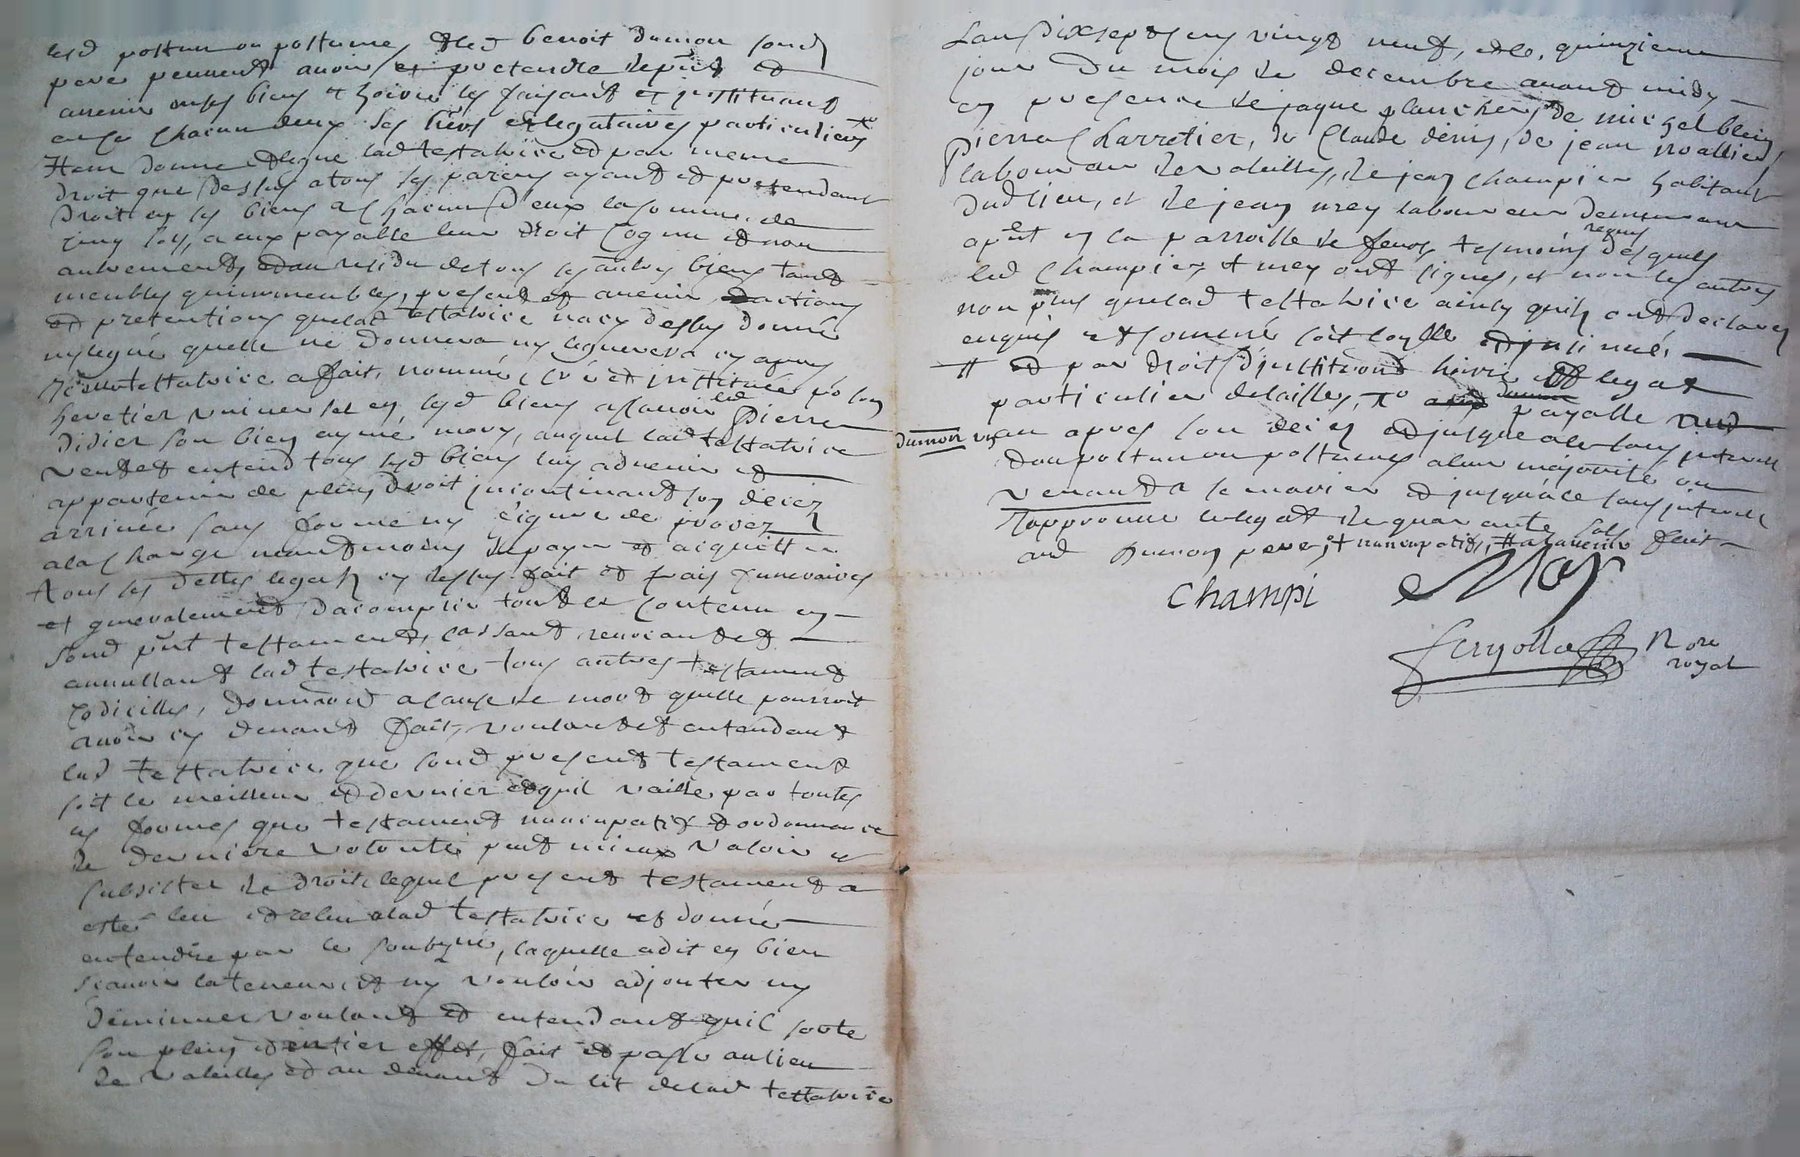 lesd postume ou postumes, & led benoit dumon sond
pere peuvent avoir et pretendre de pnt et
avenir en ses biens et hoirie les faisant et instituant
en ce chacun deux ses hers et legataires particuliers
Item donne et legue lad testatrice et par meme
droit que dessus a tous ses parens ayant et pretendant
droit en ses biens a chacun d'eux la somme de
cinq sols, a eux payable leur droit cognu et non
autrement, et au residu de tous ses autres biens tant
meubles qu'immeubles, present et avenir, d'actions
et pretentions que lad testatrice n'a cy dessus donné
ny legué quelle ne donnera ny leguera cy apres
icelle testatrice a fait, nommé, créé et institué po son
heretier universel en sesd biens a scavoir led Pierre
Didier son bien aymé mary, auquel lad testatrice
veut et entend tous sesd biens luy advenir et
appartenir de plein droit incontinant son decez
arrivée sans forme ny figure de procez
a la charge neantmoins de payer et acquitter
tous ses dettes legats cy dessus fait et frais funeraires
et generalement d'acomplir tout le contenu en
sond pnt testament, cassant, revocant et
annullant lad testatrice tous autres testament
codicilles, donnaon a cause de mort quelle pourroit
avoir cy devant fait, voulant et entendant
lad testatrice que sond present testament
soit le meilleur et dernier et quil vaille par toutes
les formes que testament nuncupatif et ordonnance
de derniere volonté peut mieux valoir et
subsister de droit, lequel present testament a
esté leu et releu a lad testatrice et donné
entendre par le soubzné, laquelle a dit en bien
scavoir la teneur et ny vouloir adjouter ny
diminuer voulant et entendant quil sorte
son plein et entier effet, fait et passé au lieu
de Valeilles et au devant du lit de lad testatrice
L'an Dix sept cens vingt neuf, et le, quinzieme
jour Du mois de decembre avant midy
en presence de jaque plancher, de michel blein,
Pierre Charretier, de Claude denis, de jean
laboureur de valeilles, de jean champier habitant
dud lieu, et de jean mey laboureur demeurant
apnt en la parroisse de feurs tesmoins requis desquels
led Champier et mey ont signes, et non les autres
non plus que lad testatrice ainsy quils ont declarez
enquis et sommé soit coyllé et insinué,
# et par droit d'institution heriee et legat
particulier delaissés, payable
dumon
an apres son decez et jusque a ce sans interest
dou postume ou postumes a leur majorité ou
venant a se marier et jusqu'a ce sans interest
J'approuve le legat de quarante sols fait
aud dumon pere, et nuncupatif, # a
Champi Mey
feryolle Nore
royal